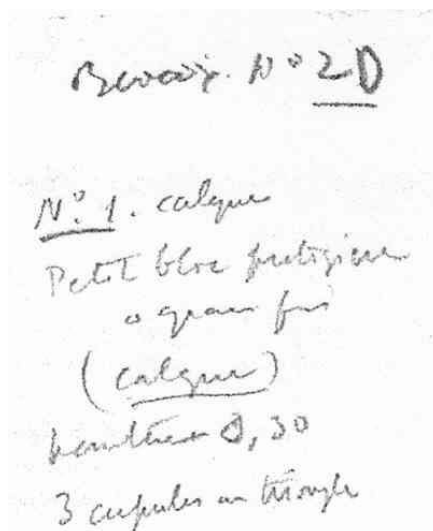 Bevaix. N° 2D
N° 1. calque
Petit bloc
a grain fin
(calque)
hauteur 0,30
3 cupules en triangle